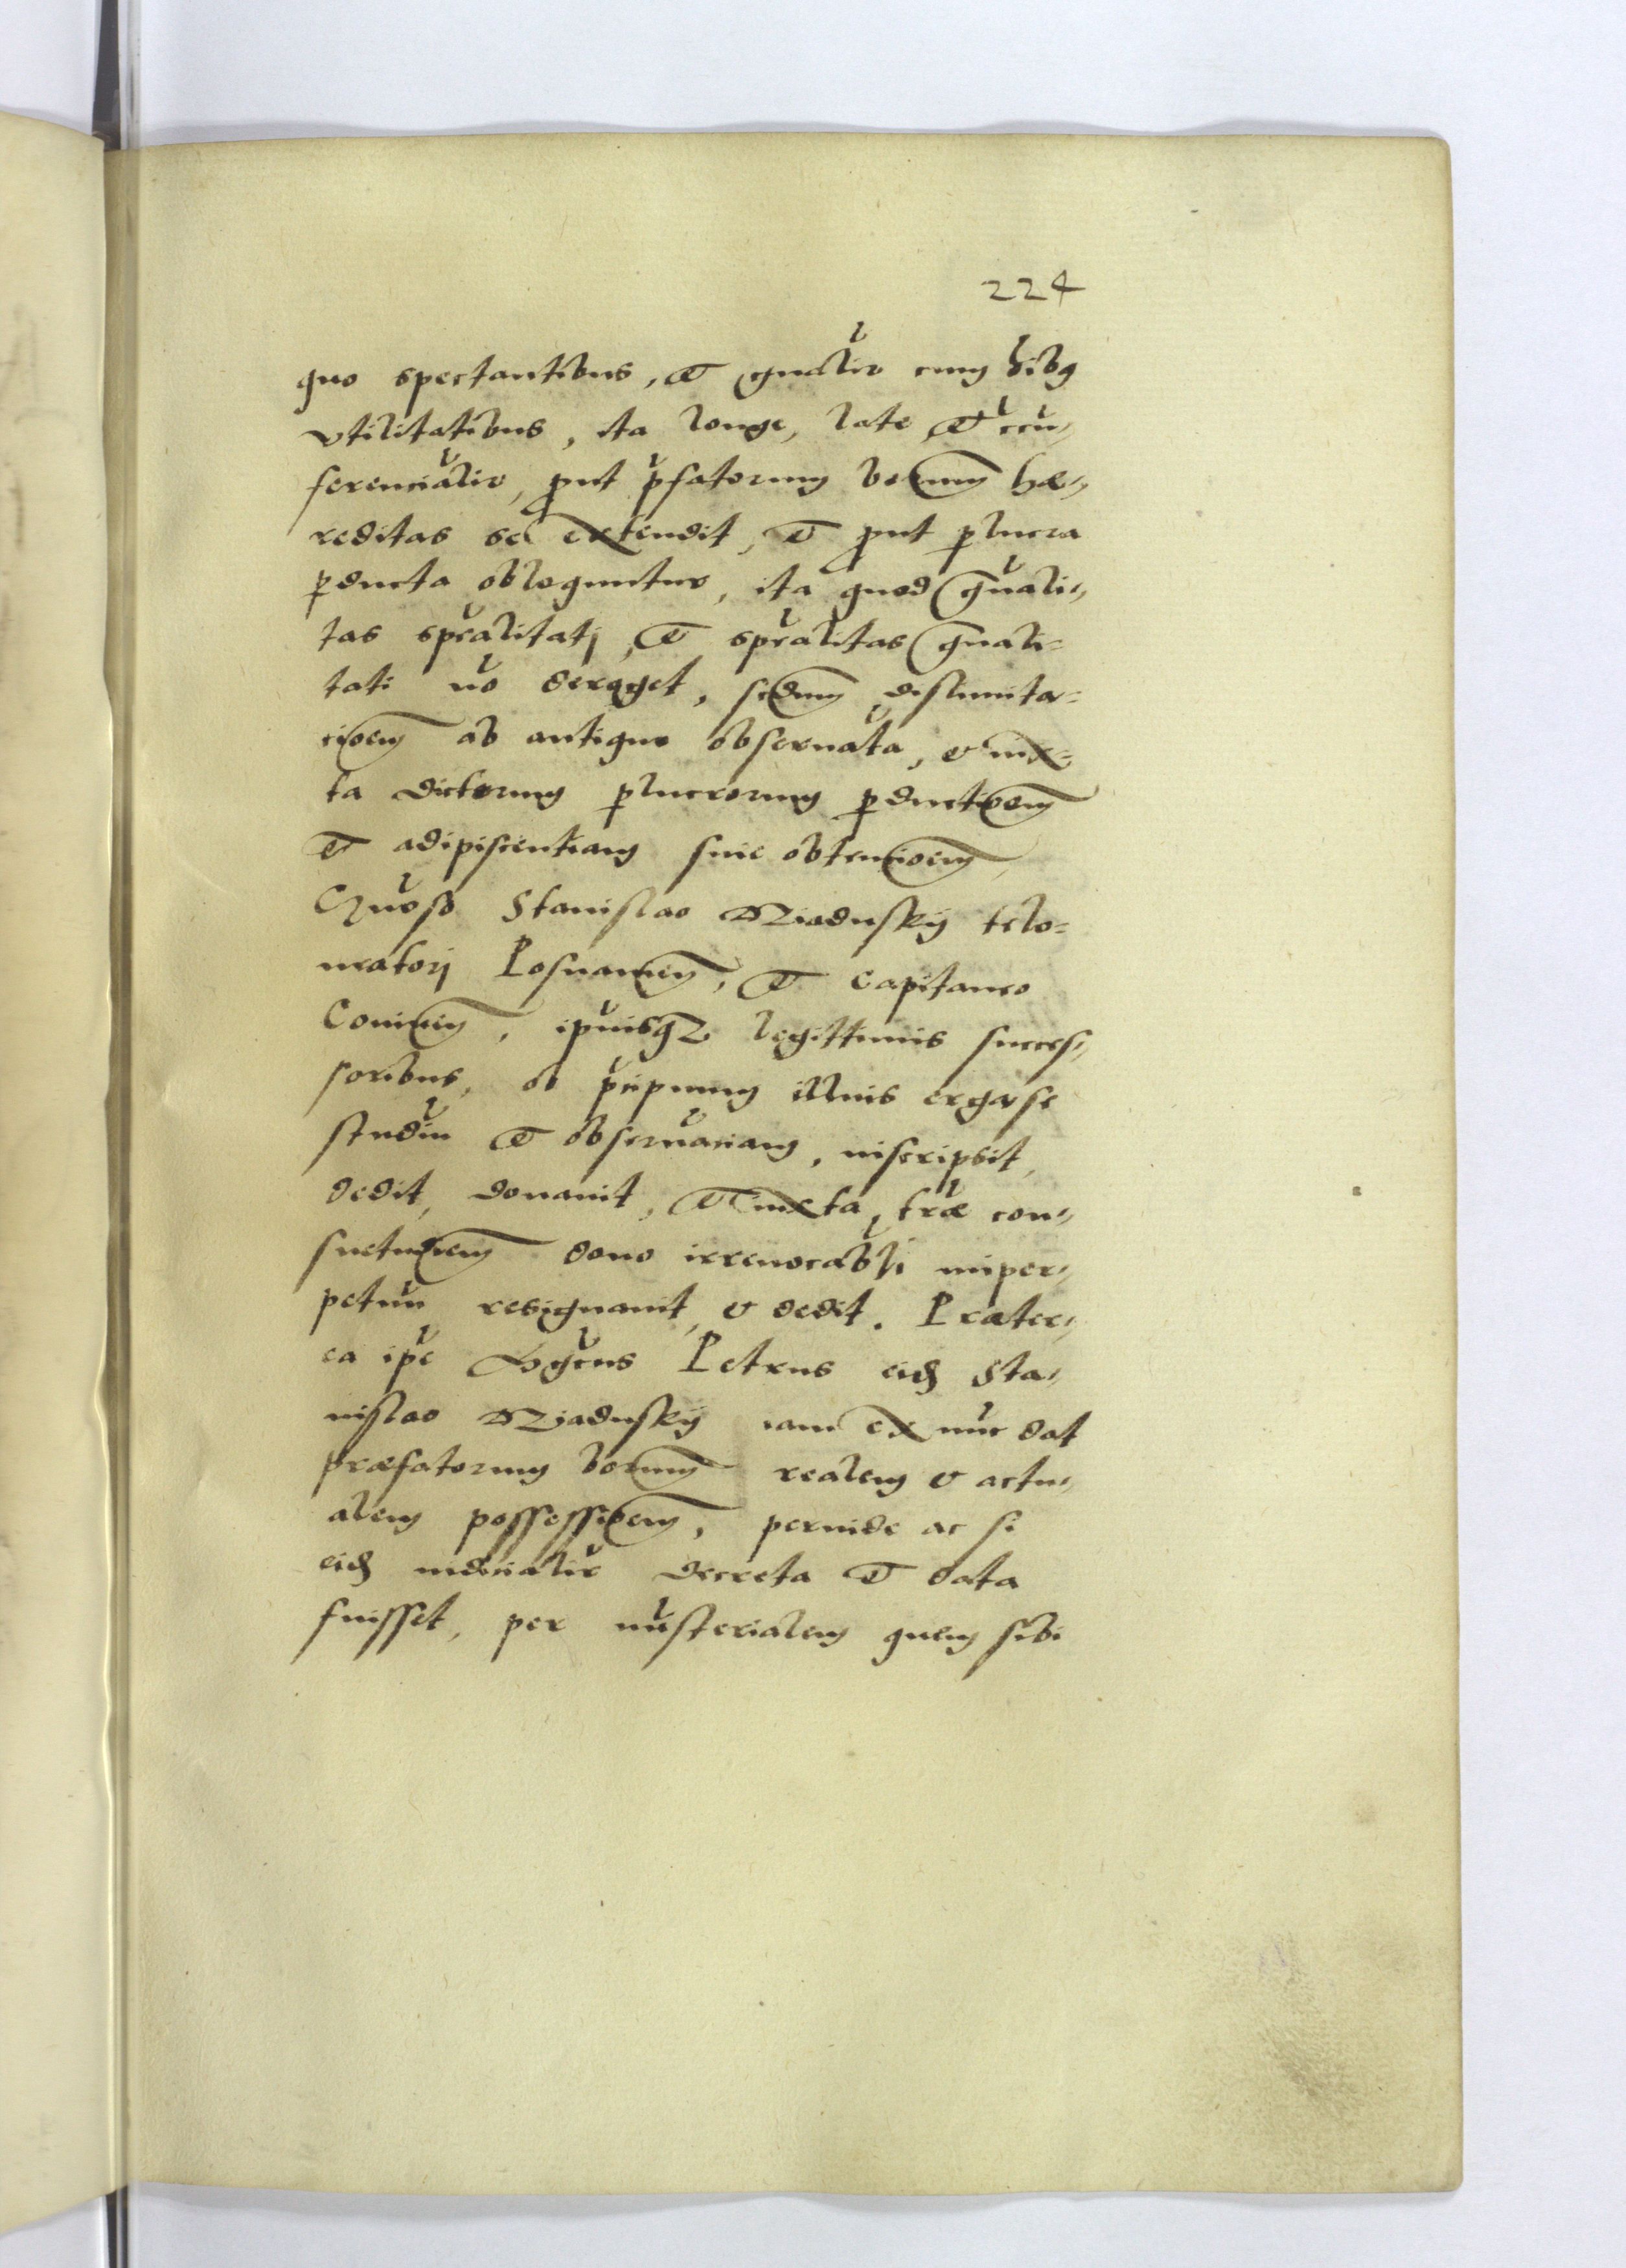 224
quo spectantibus, et gnalir cum oibus
vtilitatibus, ita longe, late, et circu„
ferencialir, prout pfatorum bonorum hæ„
reditas se extendit, et prout plucra
perducta obloquuntur, ita quod gnali„
tas spcalitati, et spcalitas gnali=
tati no deroget, secdum dislimita=
cioem ab antiquo obseruata, et iux=
ta dictorum plucrorum perductioem
et adipiscentiam siue obtencioem,
Gnoso Stanislao Niadusky telo=
neatori Posnanien, et Capitaneo
Coninen, ipiusque legittimis succes„
soribus, ob pcipuum illius erga se
studiu et obseruaciam, inscripsit,
dedit, donauit, et iuxta træ con„
suetudinem dono irreuocabli inper„
petuu resignauit, et dedit. Præter„
ea ipe Petrus eidem Sta„
nislao Niadusky iam ex nuc dat
præfatorum bonorum realem et actu„
alem possessioem, perinde ac si
eidem iudicialir decreta et data
fuisset, per misterialem quem sibi